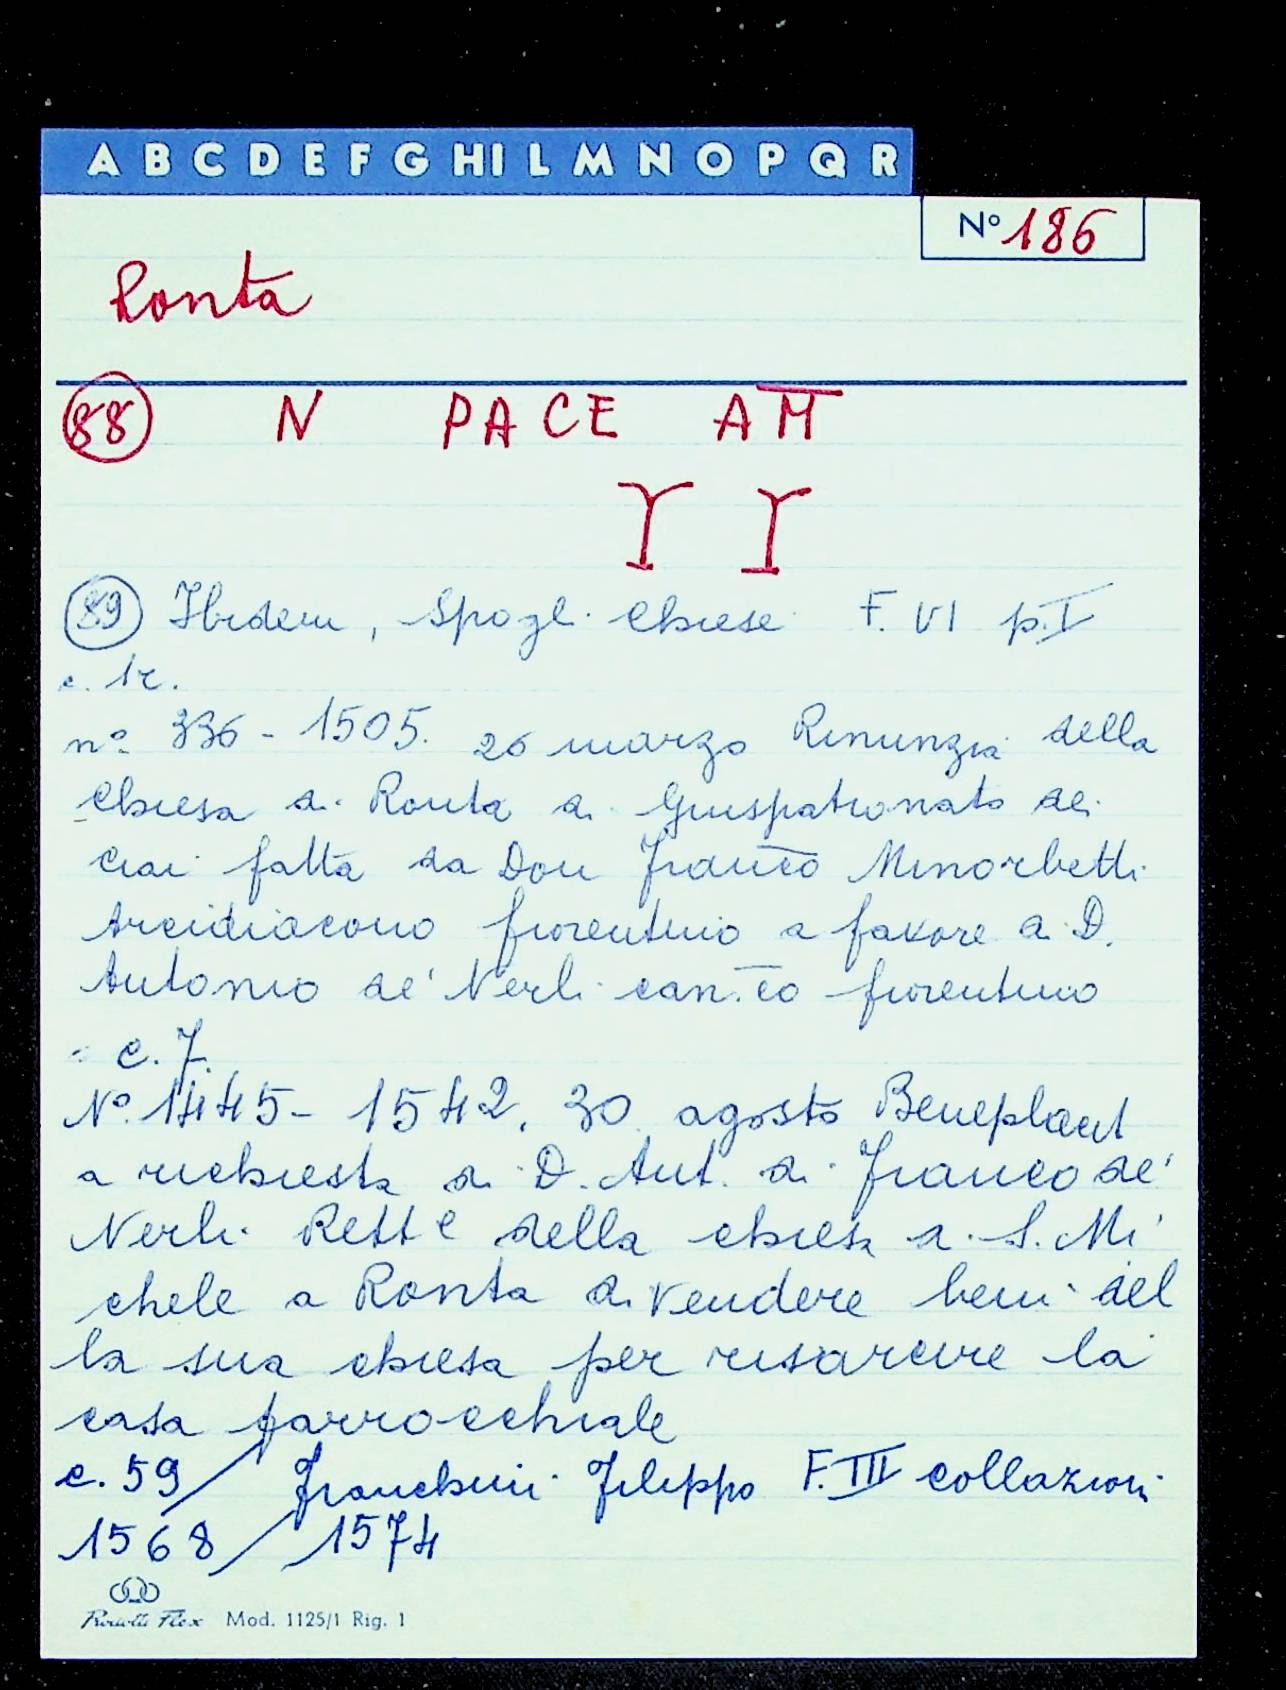 A B C D E F G HI L M N O P Q R
N° 186
Ronta
88 N PACE AM̅
89 Ibidem, Spogl. Chiese F. VI p. I
c. 1r.
n° 336 - 1505. 26 marzo Rinunzia della
chiesa di Ronta di Giuspatronato dei
Ciai fatta da Don Franc̅o Minorbetti
Arcidiacono fiorentino a favore di D.
Antonio de' Nerli can.c̅o fiorentino
c. 7.
N° 1445 - 1542, 30 agosto Beneplacit
a richiesta di D. Ant. di Franco de'
Nerli Rett e della chiesa di S. Mi
chele a Ronta di vendere beni del
la sua chiesa per risarcire la
casa parrocchiale
c. 59 / Franchini Filippo F. III collazioni
1568 / 1574
Flex Mod. 1125/1 Rig. 1